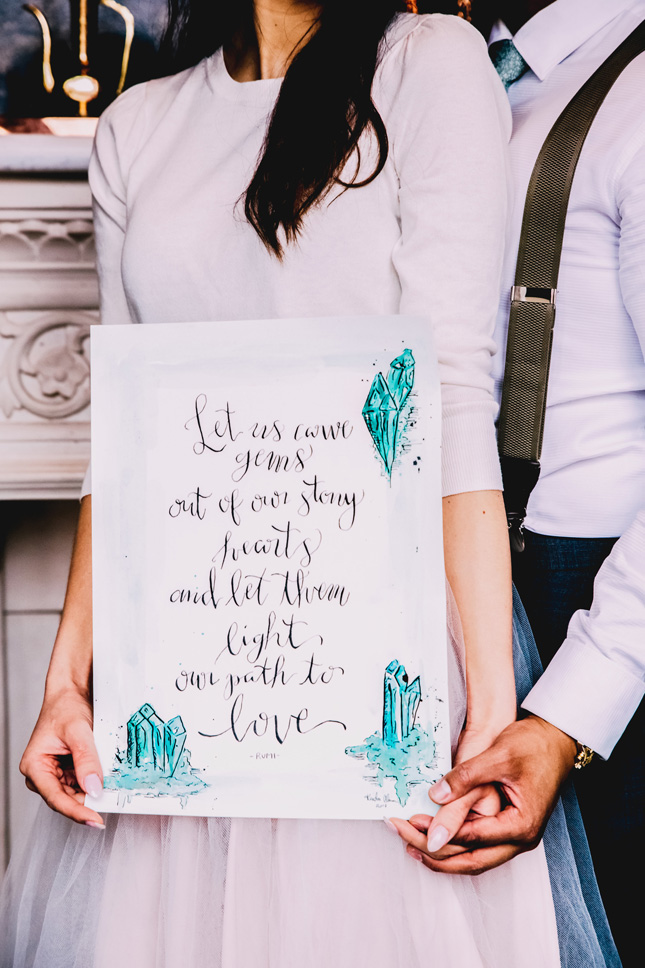 Let us carve
gems
out of our stony
hearts
and let them
light
our path to
love
-RUMI-